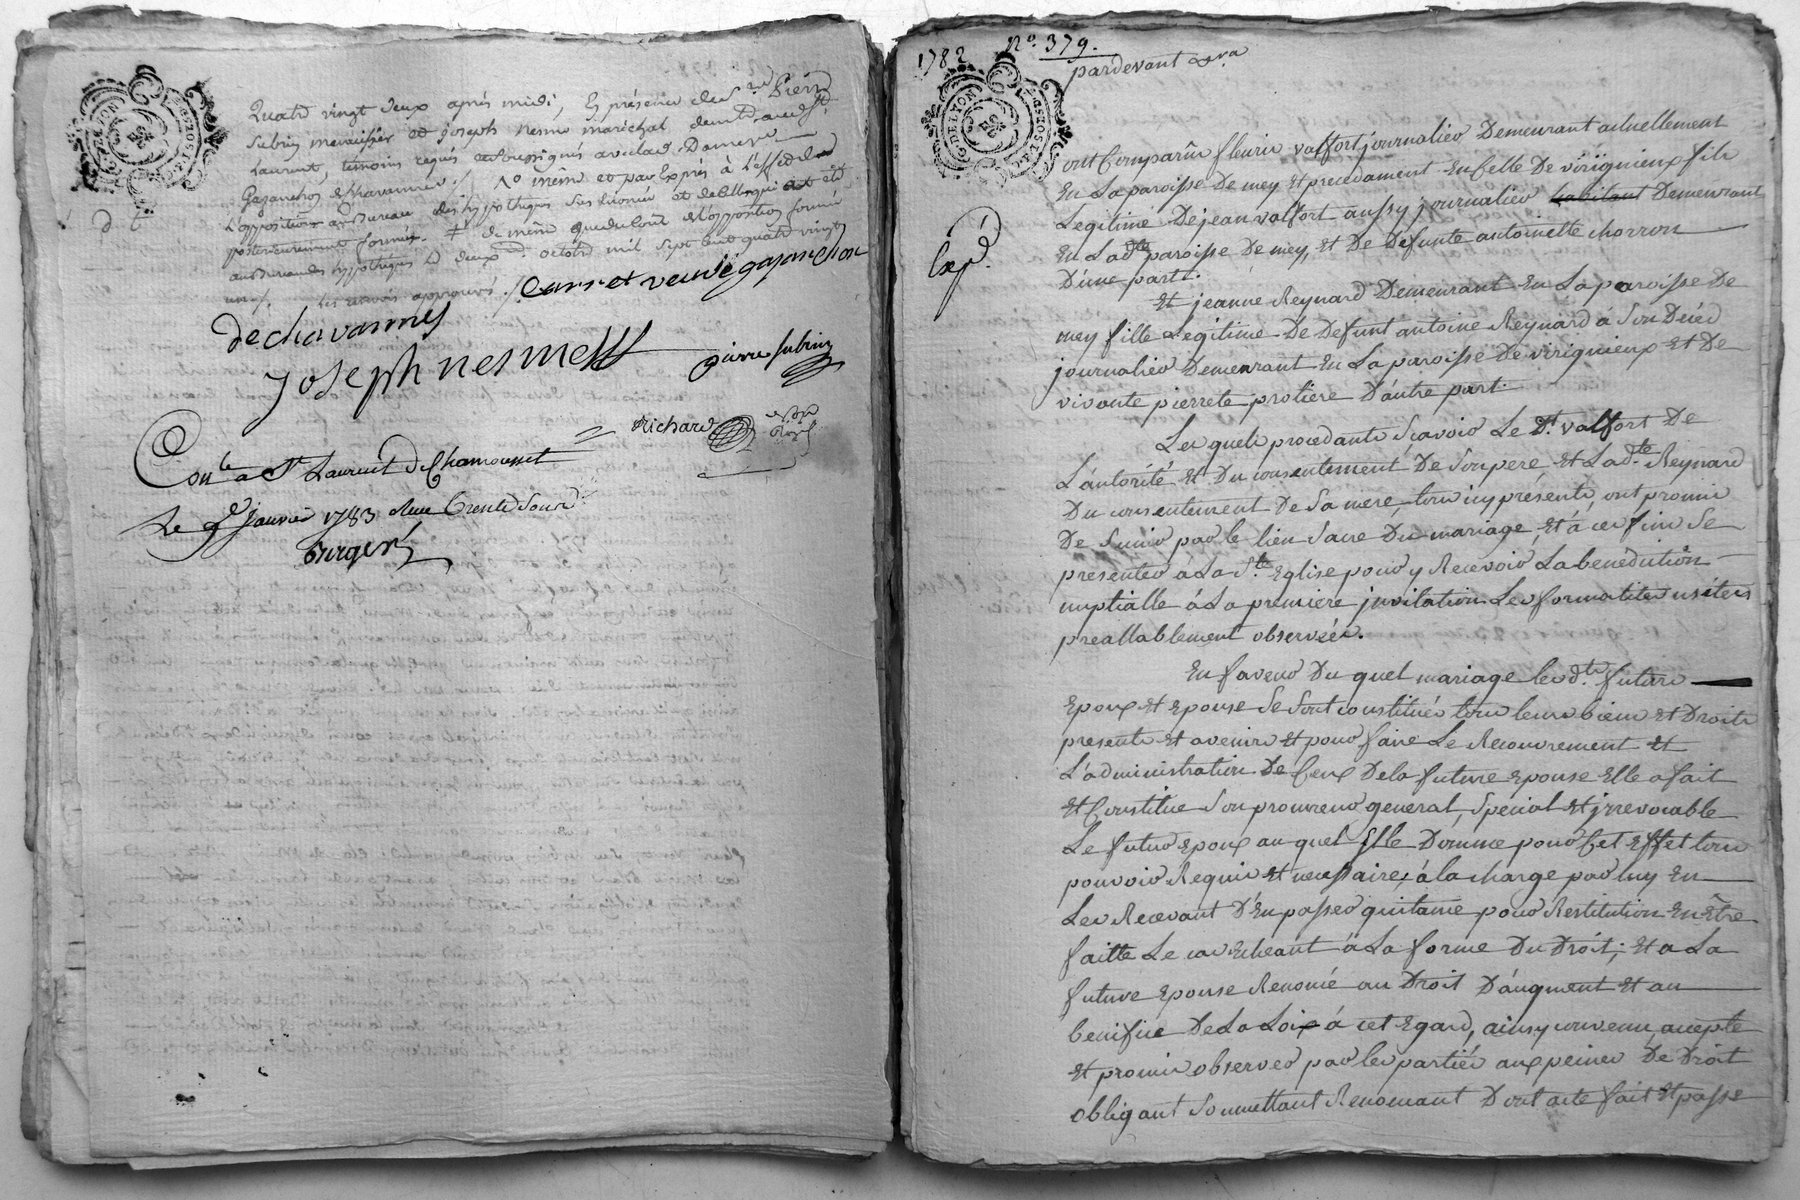 Quatre vingt deux après midi, En présence de Sr. Pierre
Subrin menuisier et joseph nesme maréchal demt. audt. St.
Laurent, témoins requis et soussignés avec lad. Dame
Gazanchon & Chavannes
L'opposition au Bureau des hypotheques
posterieurement formés. de même que du coût de l'opposition formée
hypotheques deux octobre mil sept cent quatre vingt
les renvois approuvés
Carret veuve gazanchon
dechavannes
Joseph nesme
pierre subrin
Richard
Conlé a St Laurent De Chamousset
Le 9e Janvier 1783 Reçu Trente Sous
1782
No. 379.
DE LYON
pardevant &ra
Exp.é
ont Comparû fleurie valfort journalier Demeurant actuellement
En La paroisse De mey Et precedament En Celle De virignieux fils
Legitime De jean valfort aussy journalier habitant Demeurant
En Lad.te paroisse De mey, Et De Defunte antoinette chorron
D'une part.
Et jeanne Reynard Demeurant En La paroisse De
mey fille Legitime De Defunt antoine Reynard á Son Décéd
journalier Demeurant En La paroisse De virignieux Et De
vivante pierrete protiere D'autre part.
Les quels procedants Scavoir Le D.t valfort De
L'autorité Et Du consentement De Son pere, Et La d.te Reynard
Du consentement De Sa mere, tous icy présents, ont promis
De S'unir par le lien Sacré Du mariage, Et á ces fins Se
presenter á La S.te Eglise pour y Recevoir La benediction
nuptialle á La premiere jnvitation Les formalités usitées
preallablement observées.
En faveur Du quel mariage les d.ts futurs
Epoux Et Epouse Se Sont constitués tous leurs biens Et Droits
presents Et avenirs Et pour faire Le Recouvrement Et
L'administration De Ceux De la future Epouse Elle a fait
Et Constitué Son procureur general, Special Et jrrevocable
Le futur Epoux au quel Elle Donne pour Cet Effet tous
pouvoir Requis Et necessaire, á la charge par luy En
Les Recevant D'En passer quitance pour Restitution En Être
faitte Le cas Echeant á La forme Du Droit; Et a La
future Epouse Renoncé au Droit D'augment Et au
benifice De La Loix á cet Egard, ainsy convenu, accepté
Et promis observer par les parties aux peines De Droit
obligeant Soumettant Renoncant Dont acte fait Et passé